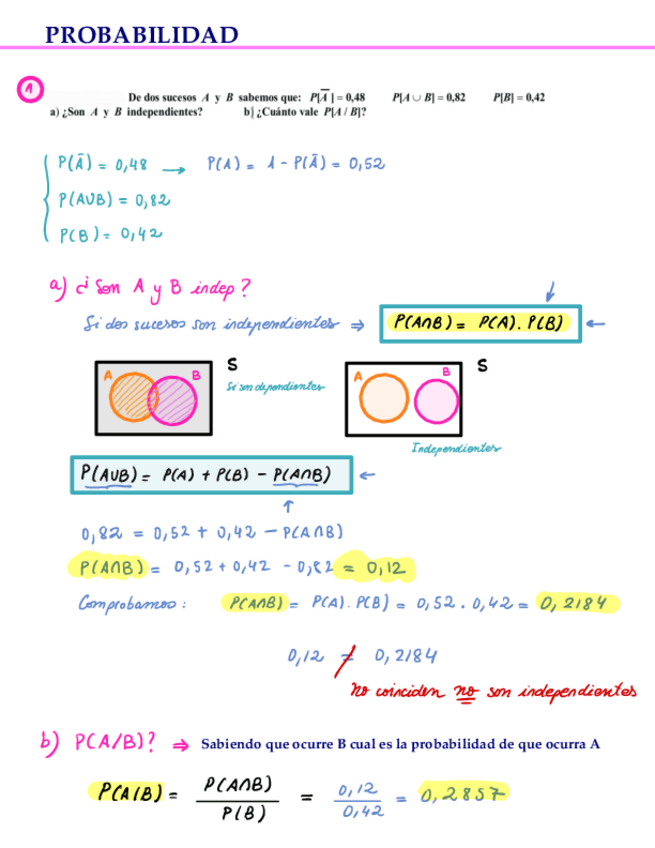 PROBABILIDAD
1
De dos sucesos A y B sabemos que: P[A̅] = 0,48 P[A ∪ B] = 0,82 P[B] = 0,42
a) ¿Son A y B independientes? b) ¿Cuánto vale P[A / B]?
P(Ā) = 0,48 → P(A) = 1 - P(Ā) = 0,52
P(A∪B) = 0,82
P(B) = 0,42
a) ¿Son A y B indep?
Si dos sucesos son independientes ⇒ P(A∩B) = P(A). P(B) ←
A B S
Si son dependientes
A B S
Independientes
P(A∪B) = P(A) + P(B) - P(A∩B) ←
↑
0,82 = 0,52 + 0,42 - P(A∩B)
P(A∩B) = 0,52 + 0,42 - 0,82 = 0,12
Comprobamos: P(A∩B) = P(A). P(B) = 0,52 . 0,42 = 0,2184
0,12 ≠ 0,2184
no coinciden no son independientes
b) P(A/B)? ⇒ Sabiendo que ocurre B cual es la probabilidad de que ocurra A
P(A/B) = P(A∩B) / P(B) = 0,12 / 0,42 = 0,2857